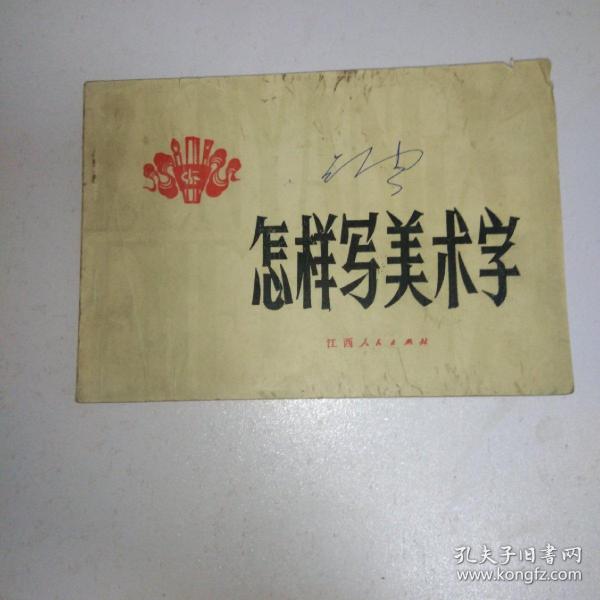 怎样写美术字
江西人民出版社
孔夫子旧書网
www.kongfz.com